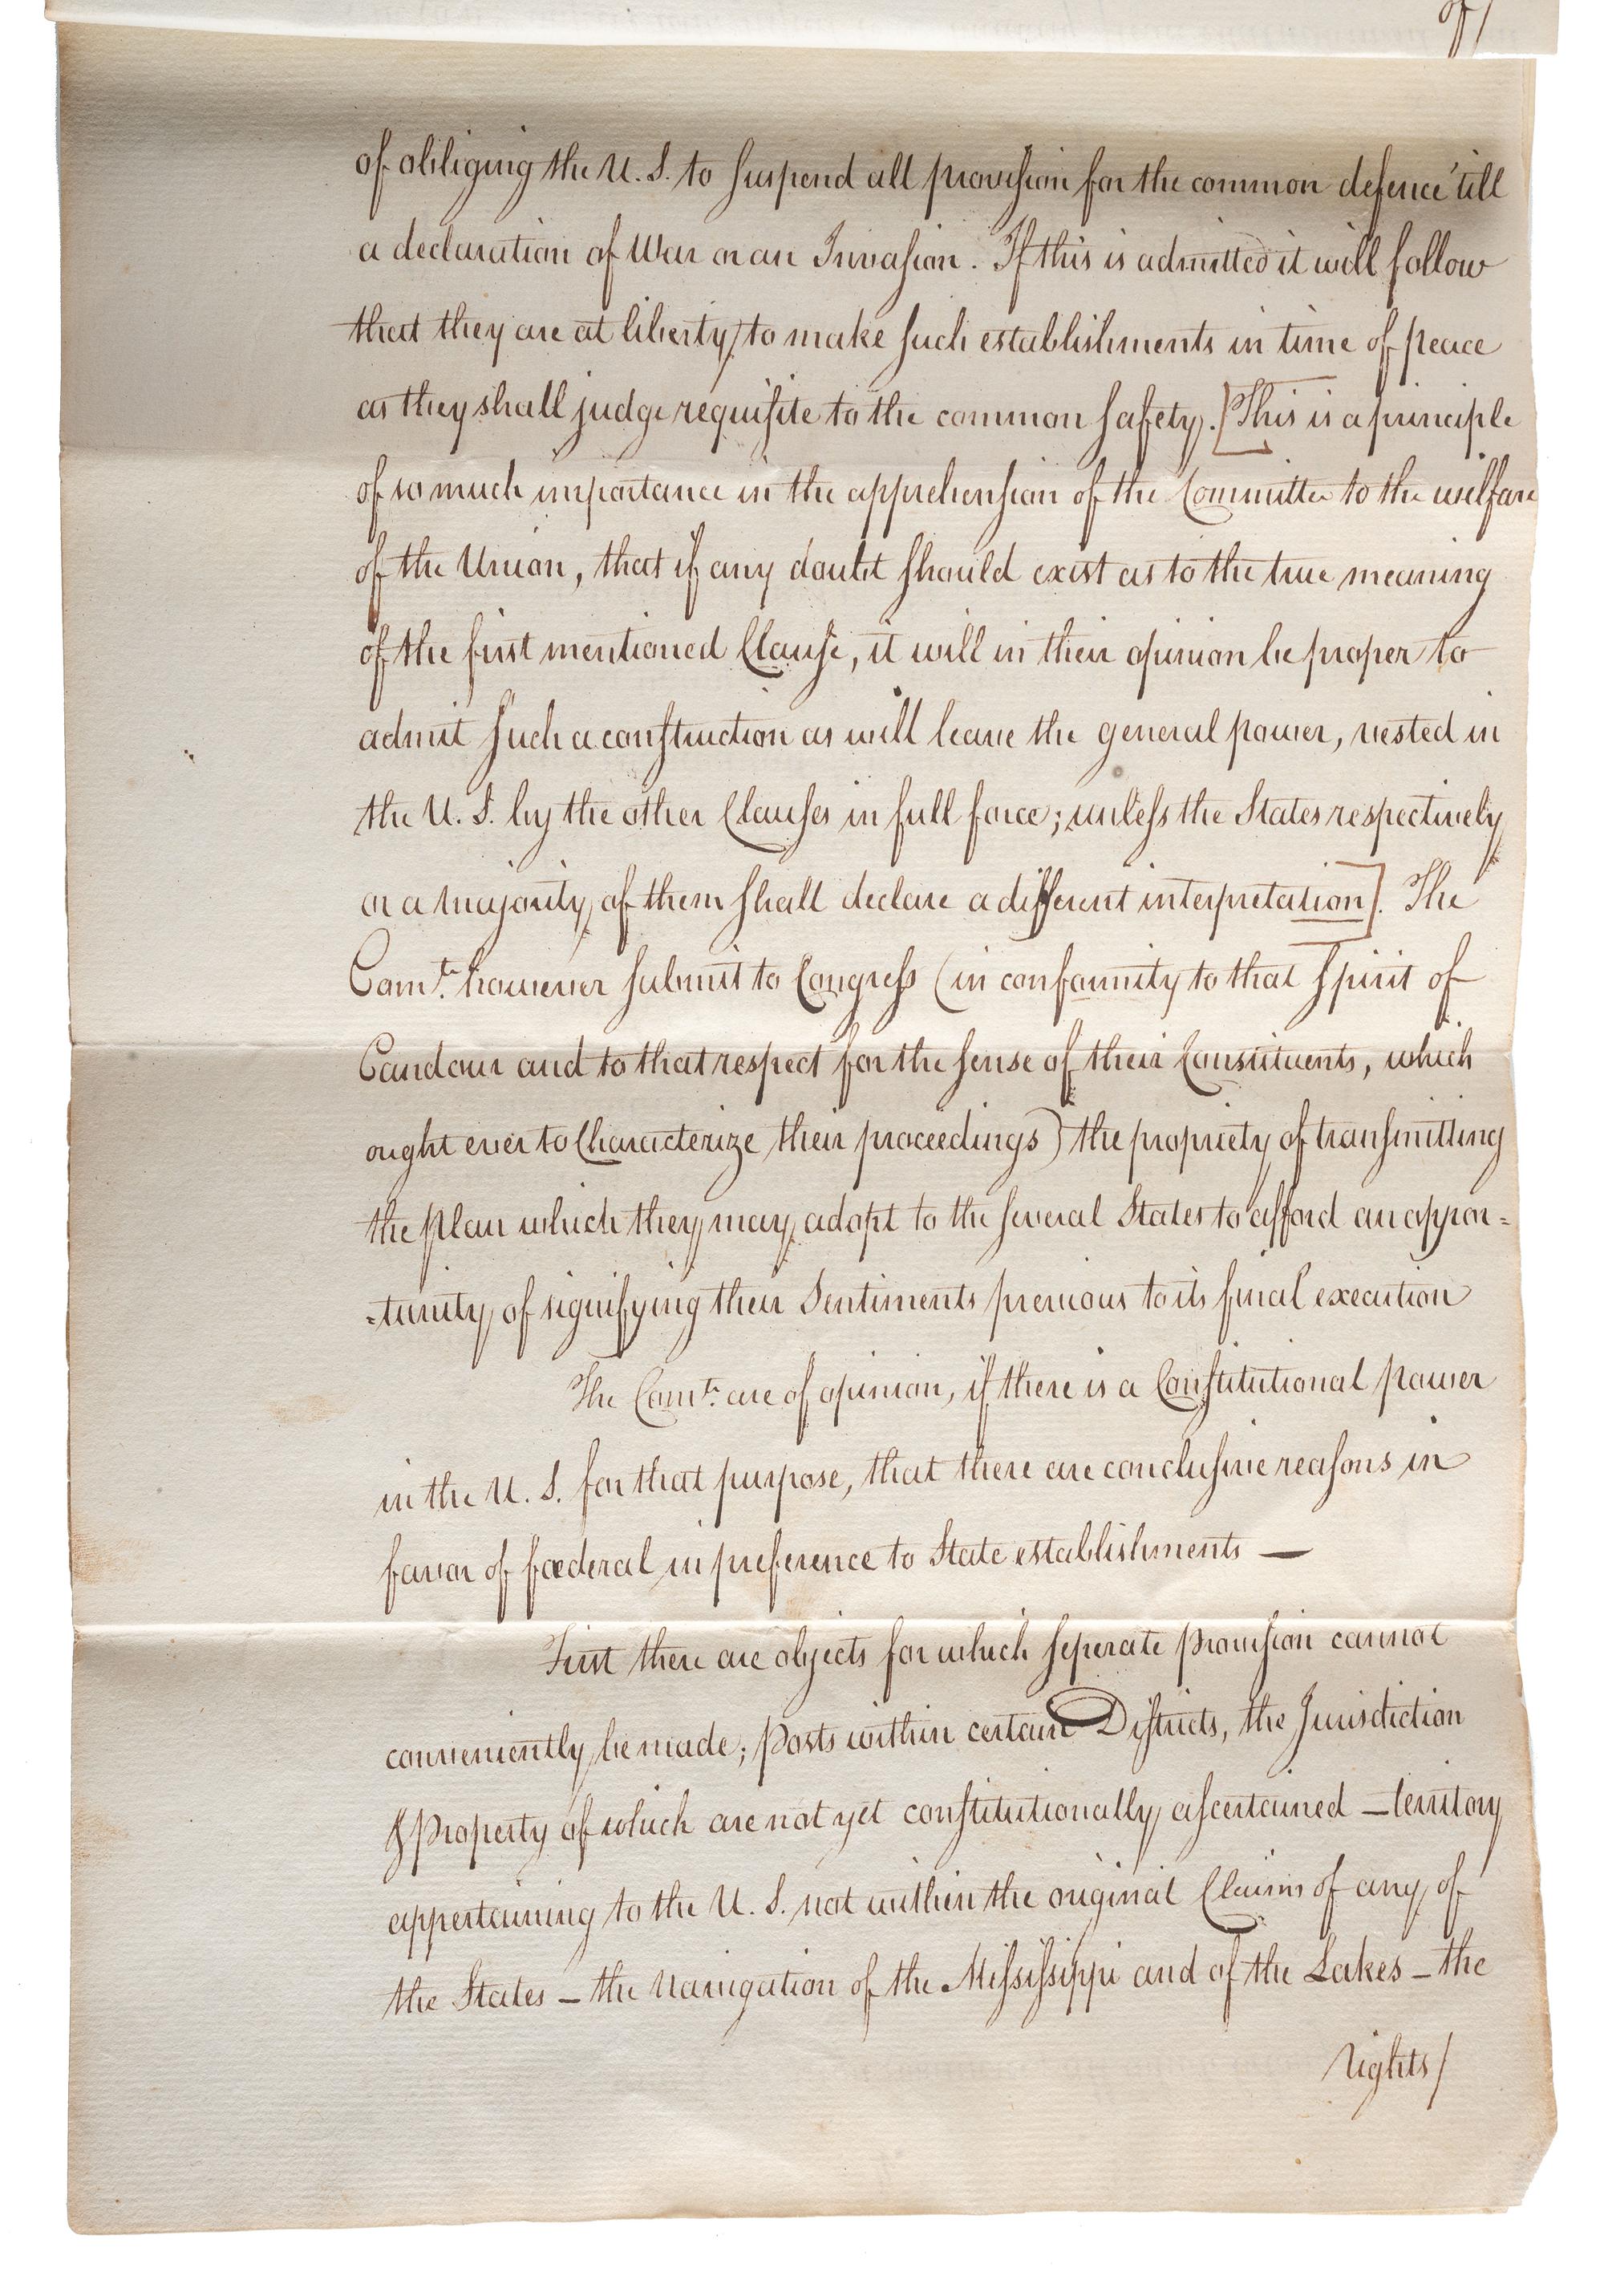 of/
of obliging the U. S. to suspend all provision for the common defence 'till
a declaration of War or an Invasion. If this is admitted it will follow
that they are at liberty, to make such establishments in time of peace
as they shall judge requisite to the common safety. [This is a principle
of so much importance in the apprehension of the Committee to the welfare
of the Union, that if any doubt should exist as to the true meaning
of the first mentioned Clause, it will in their opinion be proper to
admit such a construction as will leave the general power, vested in
the U. S. by the other Clauses in full force; unless the States respectively
or a majority of them shall declare a different interpretation]. The
Comte. however submit to Congress (in conformity to that spirit of
Candour and to that respect for the sense of their Constituents, which
ought ever to Characterize their proceedings) the propriety of transmitting
the plan which they may adopt to the several States to afford an oppor=
=tunity of signifying their Sentiments previous to its final execution
The Comte. are of opinion, if there is a Constitutional power
in the U. S. for that purpose, that there are conclusive reasons in
favor of fœderal in preference to State establishments —
First there are objects for which seperate provision cannot
conveniently be made; Posts within certain Districts, the Jurisdiction
& Property of which are not yet constitutionally ascertained — territory
appertaining to the U. S. not within the original Claims of any of
the States — the Navigation of the Mississippi and of the Lakes — the
rights/